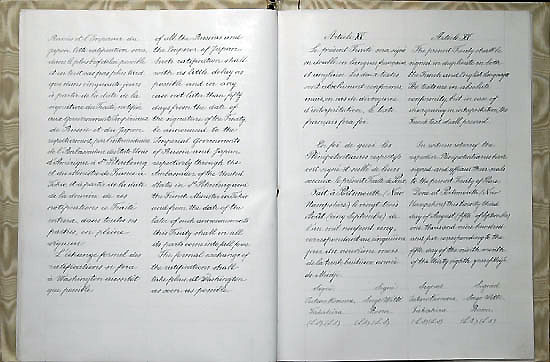 Russies et l'Empereur du
Japon. Cette ratification sera,
dans le plus bref délai possible
et en tout cas pas plus tard
que dans cinquante jours
à partir de la date de la
signature du Traité, notifiée
aux Gouvernements Impériaux
de Russie et du Japon
respectivement par l'intermédiaire
de l'Ambassadeur des Etats Unis
d'Amérique à St. Pétersbourg
et du Ministre de France à
Tokio et à partir de la date
de la dernière de ces
notifications ce Traité
entrera, dans toutes ses
parties, en pleine
vigueur.
L'échange formel des
ratifications se fera
à Washington aussitôt
que possible.
of all the Russias and
the Emperor of Japan.
Such ratification shall
with as little delay as
possible and in any
case not later than fifty
days from the date of
the signature of the Treaty
be announced to the
Imperial Governments
of Russia and Japan
respectively through the
Ambassador of the United
States in St. Petersburg and
the French Minister in Tokio
and from the date of the
later of such announcements
this Treaty shall in all
its parts come into full force.
The formal exchange of
the ratifications shall
take place at Washington
as soon as possible.
Article XV
Le présent Traité sera signé
en double en langues française
et anglaise. Les deux textes
sont absolument conformes;
mais, en cas de divergence
d'interprétation, le texte
français fera foi.
En foi de quoi les
Plénipotentiaires respectifs
ont signé et scellé de leurs
sceaux le présent Traité de Paix.
Fait à Portsmouth (New
Hampshire) le vingt trois
Août (cinq Septembre) de
l'an mil neuf cent cinq,
correspondant au cinquième
jour du neuvième mois
de la trente huitième année
de Meiji.
Signé Signé
Jutaro Komura Serge Witte
Takahira Rosen
(L.S.) (L.S.) (L.S.) (L.S.)
Article XV
The present Treaty shall be
signed in duplicate in both
the French and English languages.
The texts are in absolute
conformity, but in case of
discrepancy in interpretation, the
French text shall prevail.
In witness whereof, the
respective Plenipotentiaries have
signed and affixed their seals
to the present Treaty of Peace.
Done at Portsmouth (New
Hampshire) this twenty third
day of August (fifth of September)
one thousand nine hundred
and five corresponding to the
fifth day of the ninth month
of the thirty eighth year of Meiji.
Signed Signed
Jutaro Komura Serge Witte
Takahira Rosen
(L.S.) (L.S.) (L.S.) (L.S.)